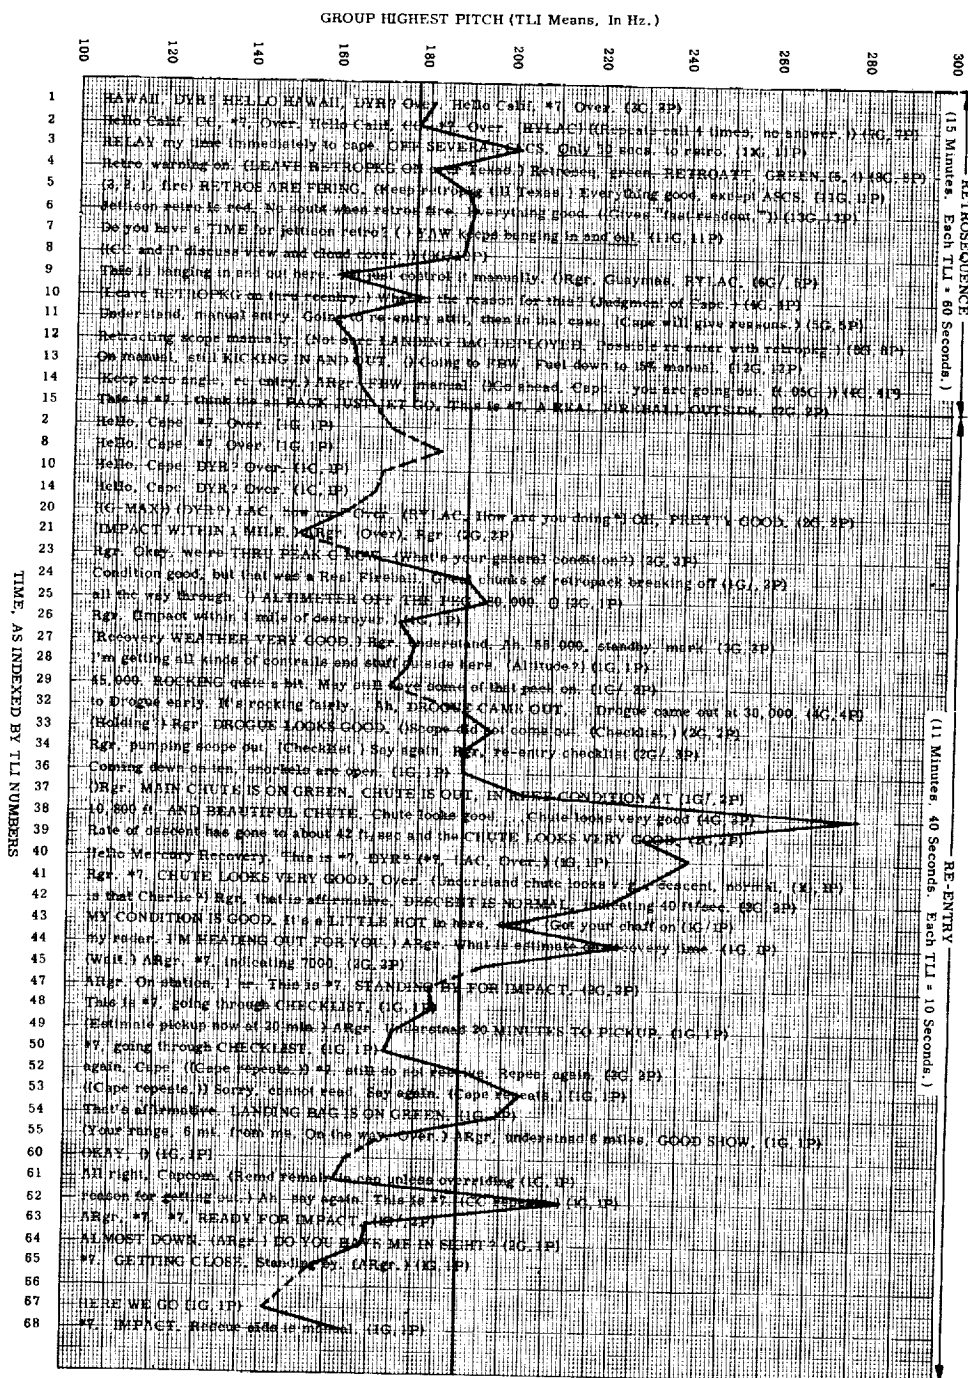 GROUP HIGHEST PITCH (TLI Means, In Hz.)
100 120 140 160 180 200 220 240 260 280 300
1 HAWAII, DYR? HELLO HAWAII, DYR? Over. Hello Calif, *7 Over. (3G, 2P)
2 Hello Calif CC, *7, Over. Hello Calif, CC, *7 Over. (RYLAC) ((Repeats call 4 times, no answer.))
3 RELAY my time immediately to cape. OFF SEVERAL SCS. Only 50 secs. to retro. (1X, 11P)
4 Retro warning on. (LEAVE RETROPKG ON over Texas.) Retroseq, green. RETROATT, GREEN. (5, 4) (8G, 8P)
5 (3, 2, 1, fire) RETROS ARE FIRING. (Keep retropkg till Texas.) Everything good, except ASCS. (11G, 11P)
6 Jettison retro is red. No doubt when retros fire. Everything good. ((Gives "fast readout.")) (13G, 13P)
7 Do you have a TIME for jettison retro? ( ) YAW keeps banging in and out. (11G, 11P)
8 ((CC and P discuss view and cloud cover.))
9 This is banging in and out here. control it manually. ()Rgr, Guaymas, RYLAC. (6G/, 5P)
10 (Leave RETROPKG on thru reentry.) What is the reason for this? (Judgment of Cape.) (4G, 4P)
11 Understand, manual entry. Going to re-entry attit, then in that case. (Cape will give reasons.) (5G, 5P)
12 Retracting scope manually. (Not sure LANDING BAG DEPLOYED. Possible re-enter with retropkg.) (8G, 8P)
13 On manual, still KICKING IN AND OUT. ()Going to FBW, Fuel down to 15% manual. (12G, 12P)
14 (Keep zero angle, re-entry.) ARgr, FBW, manual. ()Go ahead, Cape you are going out. ((.05G.)) (4G, 4P)
15 This is *7. I think the PACK JUST LET GO, This is *7. A REAL FIREBALL OUTSIDE, (2G, 2P)
2 Hello, Cape. *7. Over. (1G, 1P)
8 Hello, Cape. *7. Over. (1G, 1P)
10 Hello, Cape. DYR? Over. (1G, 1P)
14 Hello, Cape. DYR? Over. (1G, 1P)
20 ((G-MAX)) (DYR?) LAC, how me? Over. (RYLAC, How are you doing?) OH, PRETTY GOOD. (2G, 2P)
21 (IMPACT WITHIN 1 MILE.) ARgr. (Over), Rgr. (2G, 2P)
23 Rgr. Okay, we're THRU PEAK G NOW. (What's your general condition?) (2G, 2P)
24 Condition good, but that was a Real Fireball. chunks of retropack breaking off (1G/, 2P)
25 all the way through. () ALTIMETER OFF THE PEG, 80,000. () (2G, 1P)
26 Rgr. (Impact within 1 mile of destroyer.)
27 (Recovery WEATHER VERY GOOD.) Rgr. understand. Ah, 55,000, standby, mark. (3G, 3P)
28 I'm getting all kinds of contrails and stuff outside here. (Altitude?) (1G, 1P)
29 45,000. ROCKING quite a bit. May still have some of that pack on. (1G/, 2P)
32 to Drogue early. It's rocking fairly... Ah, DROGUE CAME OUT. Drogue came out at 30,000. (4G, 4P)
33 (Holding?) Rgr. DROGUE LOOKS GOOD. ()Scope did not come out. (Checklist.) (2G, 2P)
34 Rgr, pumping scope out. (Checklist.) Say again. Rgr, re-entry checklist (2G/, 3P)
36 Coming down on ten, snorkels are open. (1G, 1P)
37 ()Rgr. MAIN CHUTE IS ON GREEN. CHUTE IS OUT, IN REEF CONDITION AT (1G/, 2P)
38 10,800 ft. AND BEAUTIFUL CHUTE. Chute looks good.... Chute looks very good
39 Rate of descent has gone to about 42 ft/sec and the CHUTE LOOKS VERY GOOD. (2G, 2P)
40 Hello Mercury Recovery. This is *7, DYR? (*7, LAC, Over.) (1G, 1P)
41 Rgr. *7, CHUTE LOOKS VERY GOOD. Over. (Understand chute looks v.g., descent, normal,
42 is that Charlie?) Rgr, that is affirmative. DESCENT IS NORMAL, indicating 40 ft/sec. (2G, 2P)
43 MY CONDITION IS GOOD. It's a LITTLE HOT in here. (Got your chaff on (1G/ 1P)
44 my radar. I'M HEADING OUT FOR YOU.) ARgr. What is estimate recovery time. (1G, 1P)
45 (Wait.) ARgr. *7, indicating 7000. (2G, 2P)
47 ARgr. On station, 1 hr. This is *7, STANDING BY FOR IMPACT. (2G, 2P)
48 This is *7, going through CHECKLIST. (1G, 1P)
49 (Estimate pickup now at 20 min.) ARgr. Understand 20 MINUTES TO PICKUP. (1G, 1P)
50 *7, going through CHECKLIST. (1G, 1P)
52 again, Cape. ((Cape repeats.)) *7, still do not receive. Repeat again. (2G, 2P)
53 ((Cape repeats.)) Sorry, cannot read. Say again. (Cape repeats.) (1G, 1P)
54 That's affirmative. LANDING BAG IS ON GREEN. (1G, 1P)
55 (Your range, 6 mi. from me. On the way. Over.) ARgr, understand 6 miles, GOOD SHOW. (1G, 1P)
60 OKAY. () (1G, 1P)
61 All right, Capcom. (Remd remain in cap unless overriding (1G, 1P)
62 reason for getting out.) Ah, say again. This is *7. (1G, 1P)
63 ARgr, *7. *7, READY FOR IMPACT.
64 ALMOST DOWN. (ARgr.) DO YOU HAVE ME IN SIGHT? (2G, 1P)
65 *7. GETTING CLOSE. Standing by. (ARgr.) (1G, 1P)
66
67 HERE WE GO (1G, 1P)
68 *7. IMPACT. Rescue aide is manual. (1G, 1P)
TIME, AS INDEXED BY TLI NUMBERS
RETROSEQUENCE
(15 Minutes. Each TLI = 60 Seconds.)
RE-ENTRY
(11 Minutes, 40 Seconds. Each TLI = 10 Seconds.)